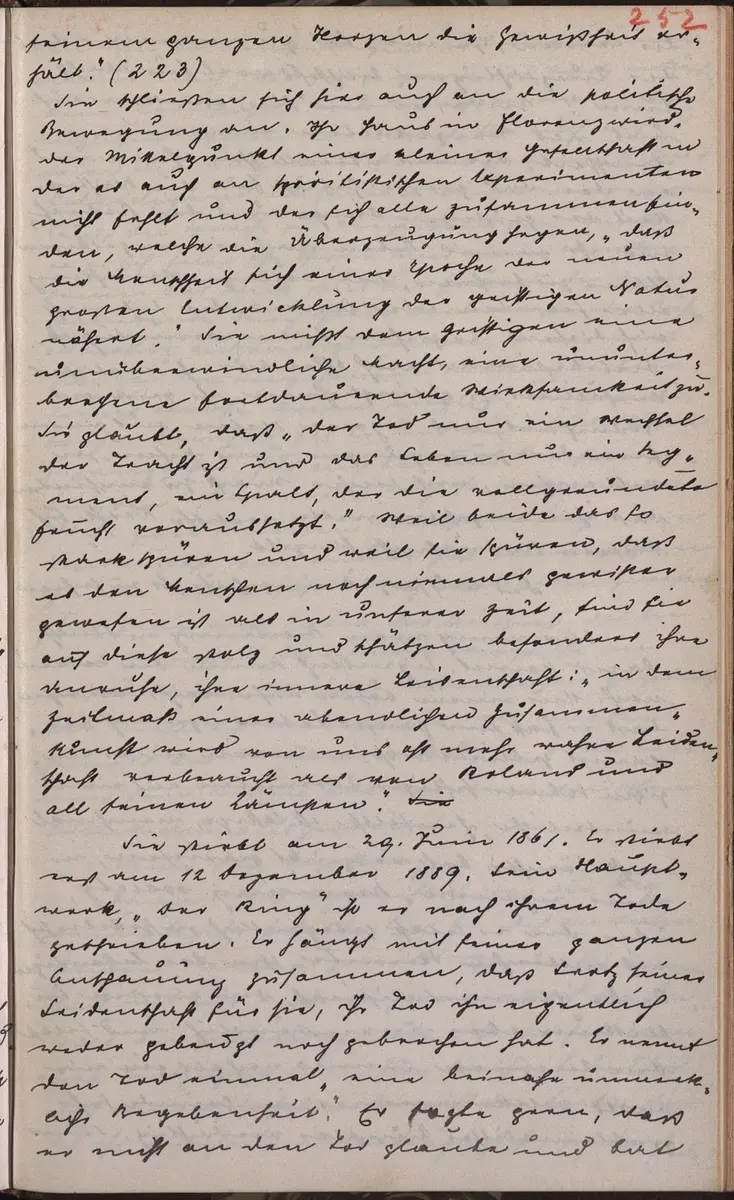 252
seinem ganzen Herzen die Gewißheit er-
hält." (223)
Sie schließen sich hier auch an die politische
Bewegung an. Ihr Haus in Florenz wird
der Mittelpunkt einer kleinen Gesellschaft in
der es auch an spiritistischen Experimenten
nicht fehlt und der sich alle zusammenfin-
den, welche die Überzeugung hegen, „daß
die Menschheit sich einer Epoche der neuen
großen Entwicklung der geistigen Natur
nähert." Sie mißt dem Geistigen eine
unüberwindliche Macht, eine ununter-
brochene fortdauernde Wirksamkeit zu.
Sie glaubt, daß „der Tod nur ein Wechsel
der Tracht ist und das Leben nur ein Seg-
ment, ein Spalt, der die vollgerundete
Frucht voraussetzt." Weil beide das so
stark spüren und weil sie spüren, daß
es den Menschen noch niemals gewisser
gewesen ist als in unserer Zeit, sind sie
auf diese stolz und schätzen besonders ihre
Unruhe, ihre innere Leidenschaft: „in dem
Zeitmaß einer abendlichen Zusammen-
kunft wird von uns oft mehr wahre Leiden-
schaft verbraucht als von Roland und
all seinen Kämpfen". Sie
Sie stirbt am 29. Juni 1861. Er stirbt
erst am 12 Dezember 1889. Sein Haupt-
werk, „Der Ring" ist es nach ihrem Tode
geschrieben. Es hängt mit seiner ganzen
Anschauung zusammen, daß trotz seiner
Leidenschaft für sie, ihr Tod ihn eigentlich
weder gebeugt noch gebrochen hat. Er nennt
den Tod einmal „eine beinahe unmerk-
liche Begebenheit". Er sagte gern, daß
er nicht an den Tod glaube und bat